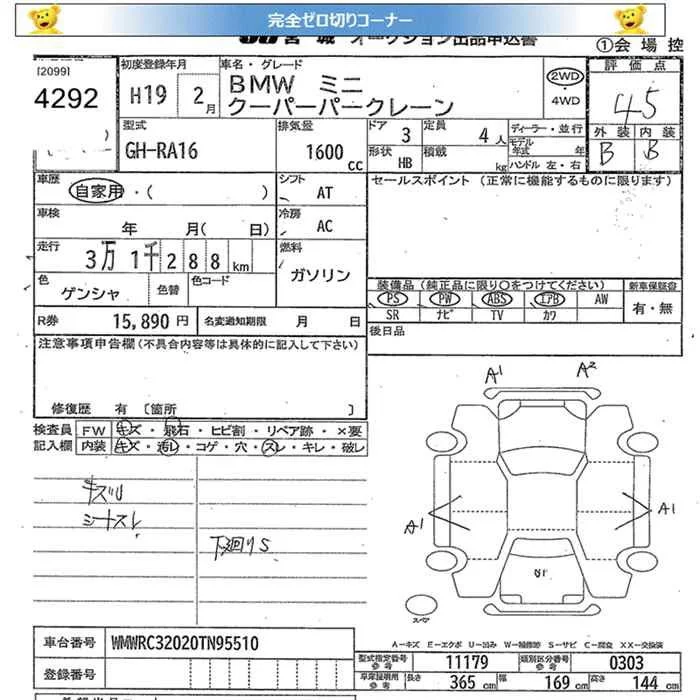 完全ゼロ切りコーナー
JU宮城 オークション出品申込書
①会場控
[2099]
4292
初度登録年月
H19 2月
車名・グレード
BMW ミニ
クーパーパークレーン
2WD
・
4WD
評価点
4.5
外装 内装
B B
型式
GH-RA16
排気量
1600cc
ドア 3
定員 4人
形状 HB
積載 kg
ディーラー・並行
モデル年式 年
ハンドル 左・右
車歴
自家用・( )
シフト AT
セールスポイント (正常に機能するものに限ります)
車検
年 月( 日)
冷房 AC
走行
3万1千288km
燃料
ガソリン
色
ゲンシャ
色替
色コード
装備品(純正品に限り○をつけてください)
新車保証書
PS PW ABS エアB AW
SR ナビ TV カワ
有・無
R券 15,890円
名変通知期限 月 日
後日品
注意事項申告欄(不具合内容等は具体的に記入して下さい)
修復歴 有 〔箇所 〕
検査員
記入欄
FW キズ・飛石・ヒビ割・リペア跡・×要
内装 キズ・汚レ・コゲ・穴・スレ・キレ・破レ
キズU
シートスレ
下廻りS
A1 A2
A1 A1
スペア
A−キズ E−エクボ U−凹み W−補修跡 S−サビ C−腐食 XX−交換済
車台番号 WMWRC32020TN95510
登録番号
型式指定番号参考 11179
類別区分番号参考 0303
車庫証明用参考 長さ 365cm 幅 169cm 高さ 144cm